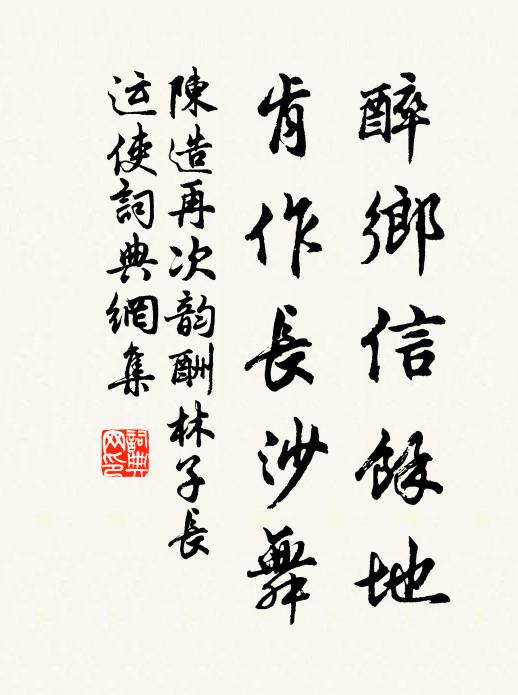 醉鄉信餘地
肯作長沙舞
陳造再次韵酬林子長
运使詞典網集
詞典网印